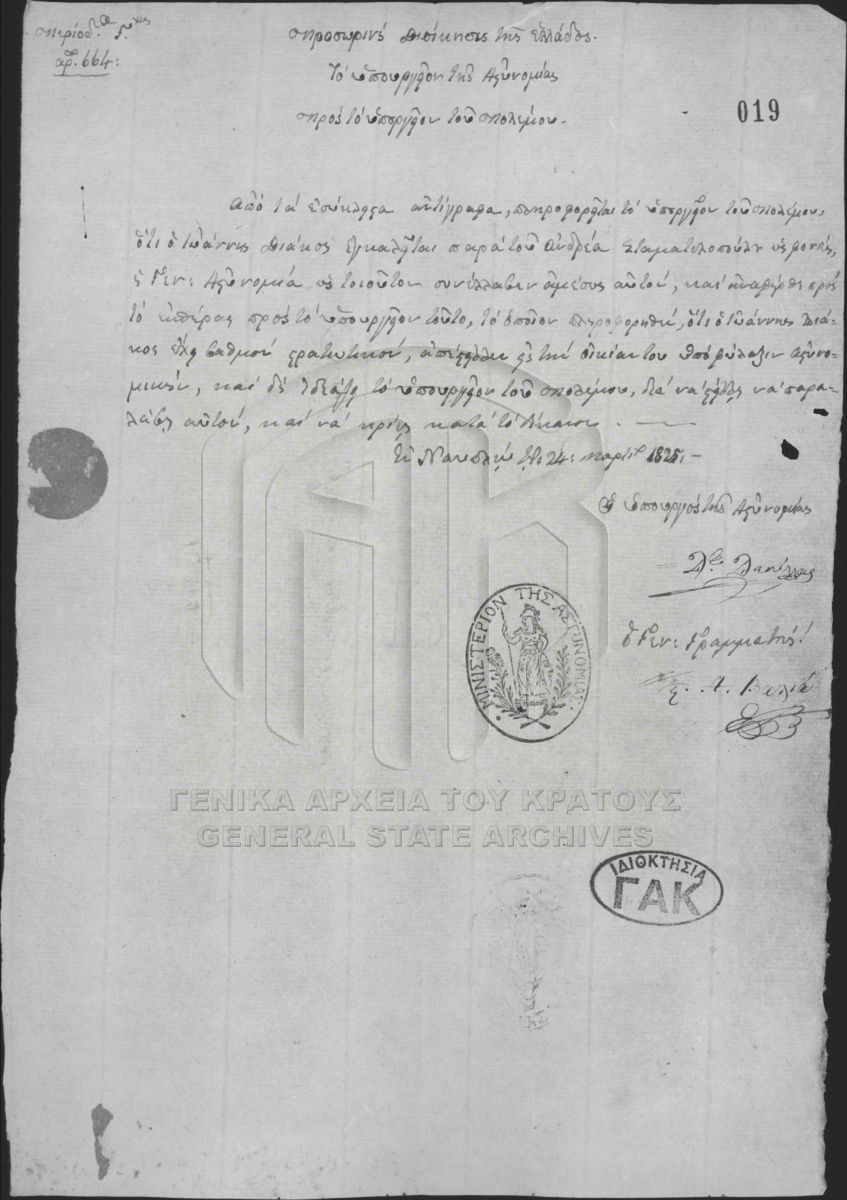 Περίοδ. Γ.
ἀρ. 664:
Προσωρινὴ Διοίκησις τῆς Ἑλλάδος.
Τὸ Ὑπουργεῖον τῆς Ἀστυνομίας
Πρὸς τὸ Ὑπουργεῖον τοῦ Πολέμου.
019
Ἀπὸ τὰ ἐσώκλειστα ἀντίγραφα, πληροφορεῖται τὸ Ὑπουργεῖον τοῦ Πολέμου,
ὅτι ὁ Ἰωάννης Διάκος ἐγκαλεῖται παρὰ τοῦ Ἀνδρέα Σταματελοπούλου ὡς φονεύς,
ἡ Γεν: Ἀστυνομία ὡς τοιοῦτον συνέλαβεν ἀμέσως αὐτόν, καὶ ἀναφέρθη πρὸς
τὸ πρὸς τὸ Ὑπουργεῖον τοῦτο, τὸ ὁποῖον πληροφορηθὲν, ὅτι ὁ Ἰωάννης Διά-
κος ἔχει βαθμὸν στρατιωτικόν, εἰς τὴν οἰκίαν του ὑπὸ φύλαξιν ἀστυνο-
μικὴν, καὶ τὸ Ὑπουργεῖον τοῦ Πολέμου, διὰ νὰ στείλῃ νὰ παρα-
λάβῃ αὐτόν, καὶ νὰ κρίνῃ κατὰ τὸ δίκαιον. —
Ἐν Ναυπλίῳ τῇ 24: Μαρτίου 1825. —
Ὁ Ὑπουργὸς τῆς Ἀστυνομίας
ὁ Γεν: Γραμματεύς
ΜΙΝΙΣΤΕΡΙΟΝ ΤΗΣ ΑΣΤΥΝΟΜΙΑΣ
ΓΕΝΙΚΑ ΑΡΧΕΙΑ ΤΟΥ ΚΡΑΤΟΥΣ
GENERAL STATE ARCHIVES
ΙΔΙΟΚΤΗΣΙΑ
ΓΑΚ